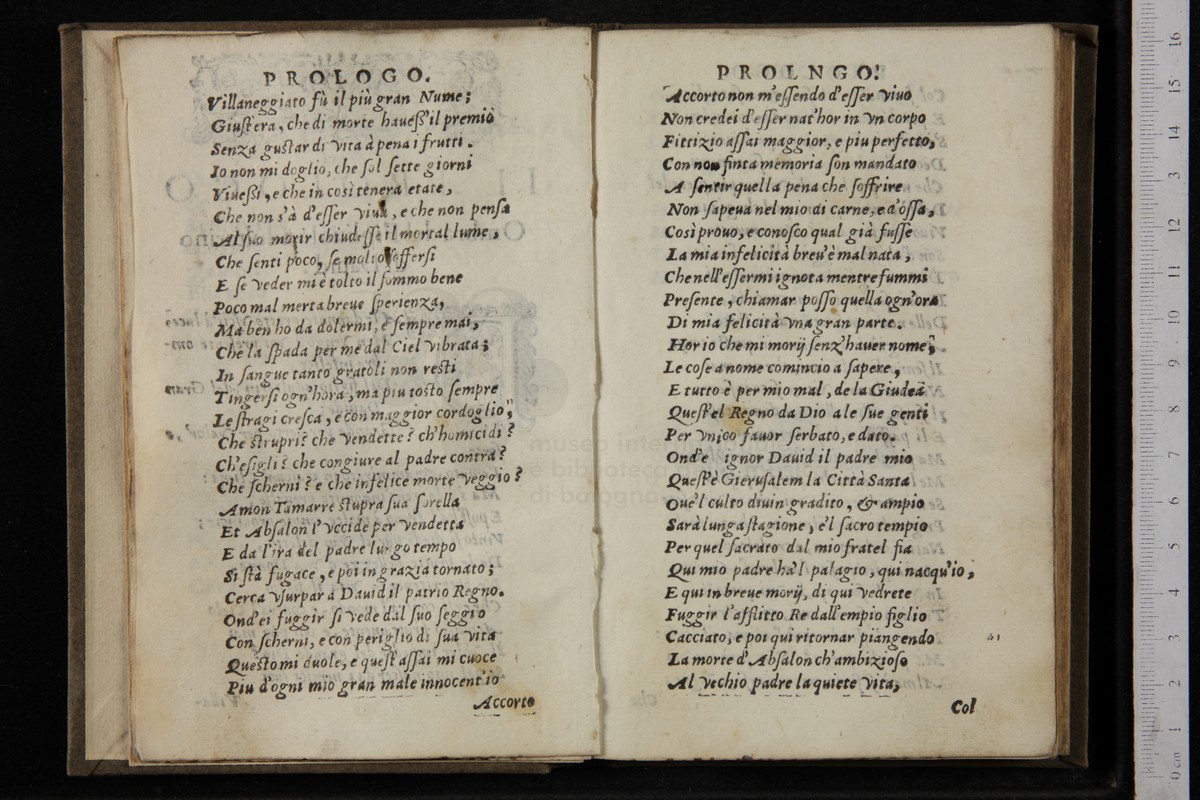 PROLOGO.
Villaneggiato fù il più gran Nume;
Giust'era, che di morte haueſs'il premio
Senza gustar di Vita à pena i frutti.
Io non mi doglio, che ſol ſette giorni
Viueſsi, e che in così tenera etate,
Che non s'à d'eſſer viua, e che non penſa
Al ſuo morir chiudeſſe il mortal lume,
Che ſenti poco, ſe molto ſofferſi
E ſe Veder mi è tolto il ſommo bene
Poco mal merta breue ſperienza,
Ma ben ho da dolermi, e ſempre mai,
Che la ſpada per me dal Ciel Vibrata;
In ſangue tanto gratoli non reſti
Tingerſi ogn'hora, ma piu tosto ſempre
Le ſtragi creſca, e con maggior cordoglio,
Che strupri? che Vendette? ch'homicidi?
Ch'eſigli? che congiure al padre contra?
Che ſcherni? e che infelice morte Veggio?
Amon Tamarre stupra ſua ſorella
Et Abſalon l'Vccide per Vendetta
E da l'ira del padre lungo tempo
Si ſtà fugace, e poi in grazia tornato;
Cerca vſurpar à Dauid il patrio Regno.
Ond'ei fuggir ſi Vede dal ſuo ſeggio
Con ſcherni, e con periglio di ſua Vita
Questo mi duole, e queſt'aſſai mi cuoce
Piu d'ogni mio gran male innocent'io
Accorto
PROLNGO.
Accorto non m'eſſendo d'eſſer Viuo
Non credei d'eſſer nat'hor in Vn corpo
Fittizio aſſai maggior, e piu perfetto,
Con non finta memoria ſon mandato
A ſentir quella pena che ſoffrire
Non ſapeua nel mio di carne, e d'oſſa,
Così prouo, e conoſco qual già fuſſe
La mia infelicità breu'è mal nata,
Che nell'eſſermi ignota mentre fummi
Preſente, chiamar poſſo quella ogn'ora
Di mia felicità Vna gran parte.
Hor io che mi morij ſenz'hauer nome;
Le coſe a nome comincio a ſapere,
E tutto è per mio mal, de la Giudea
Queſt'el Regno da Dio a le ſue genti
Per Vnico fauor ſerbato, e dato.
Ond'e ignor Dauid il padre mio
Queſt'è Gieruſalem la Città Santa
Oue'l culto diuin gradito, & ampio
Sarà lunga ſtagione, e'l ſacro tempio
Per quel ſacrato dal mio fratel fia
Qui mio padre ha'l palagio, qui nacqu'io,
E qui in breue morij, di qui Vedrete
Fuggir l'afflitto Re dall'empio figlio
Cacciato, e poi qui ritornar piangendo
La morte d'Abſalon ch'ambizioſo
Al Vechio padre la quiete Vita,
Col
museo inte
e biblioteca
di bologna
0 cm 1 2 3 4 5 6 7 8 9 10 11 12 13 14 15 16